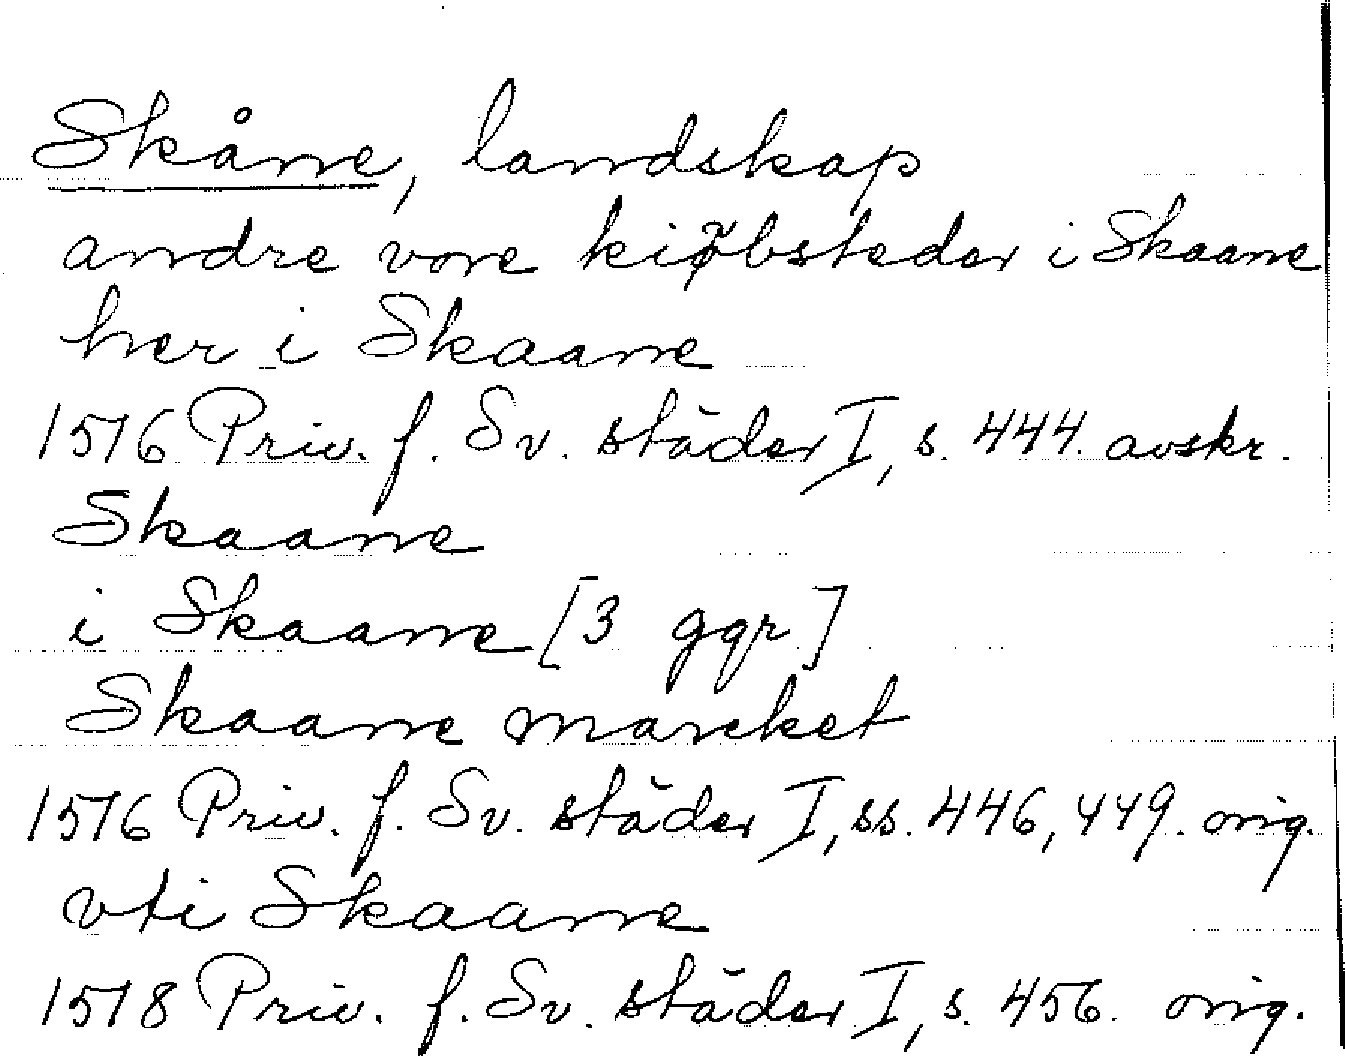 Skåne, landskap
andre vore kiøbsteder i Skaane
her i Skaane
1516 Priv. f. Sv. städer I, s. 444. avskr.
Skaane
i Skaane [3 ggr]
Skaane marcket
1516 Priv. f. Sv. städer I, ss. 446, 449. orig.
vti Skaane
1518 Priv. f. Sv. städer I, s. 456. orig.